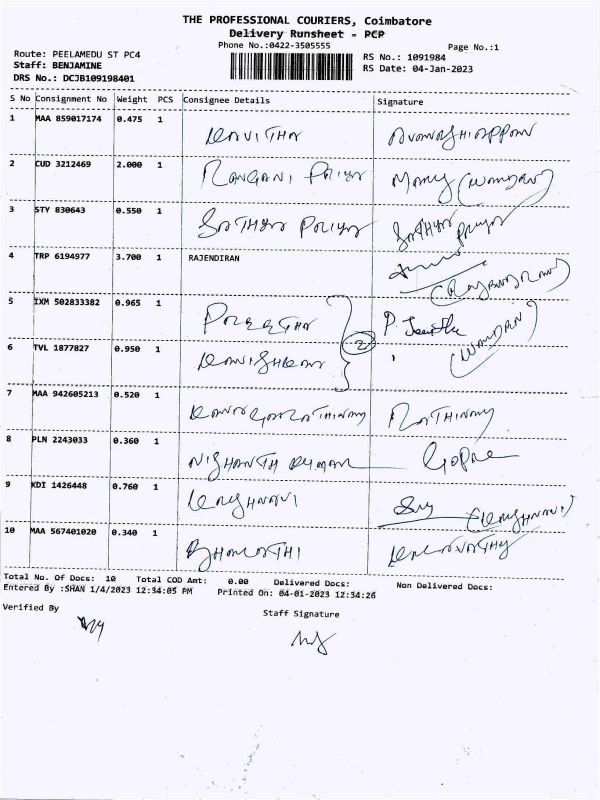 THE PROFESSIONAL COURIERS, Coimbatore
Delivery Runsheet - PCP
Phone No.:0422-3505555
Page No.:1
Route: PEELAMEDU ST PC4
Staff: BENJAMINE
DRS No.: DCJB109198401
RS No.: 1091984
RS Date: 04-Jan-2023
S No Consignment No Weight PCS Consignee Details Signature
1 MAA 859017174 0.475 1 KAVITHA
2 CUD 3212469 2.000 1 RANGANI PRIYA
3 STY 830643 0.550 1 SATHYA PRIYA SATHYA PRIYA
4 TRP 6194977 3.700 1 RAJENDIRAN (RAJENDRAN)
5 IXM 502833382 0.965 1 PREETHA P. (WOMDAN)
2
6 TVL 1877827 0.950 1
7 MAA 942605213 0.520 1 RATHINAM
8 PLN 2243033 0.360 1 NISHANTH KUMAR
9 KDI 1426448 0.760 1
10 MAA 567401020 0.340 1 BHARATHI
Total No. Of Docs: 10 Total COD Amt: 0.00 Delivered Docs: Non Delivered Docs:
Entered By :SHAN 1/4/2023 12:34:05 PM Printed On: 04-01-2023 12:34:26
Verified By Staff Signature